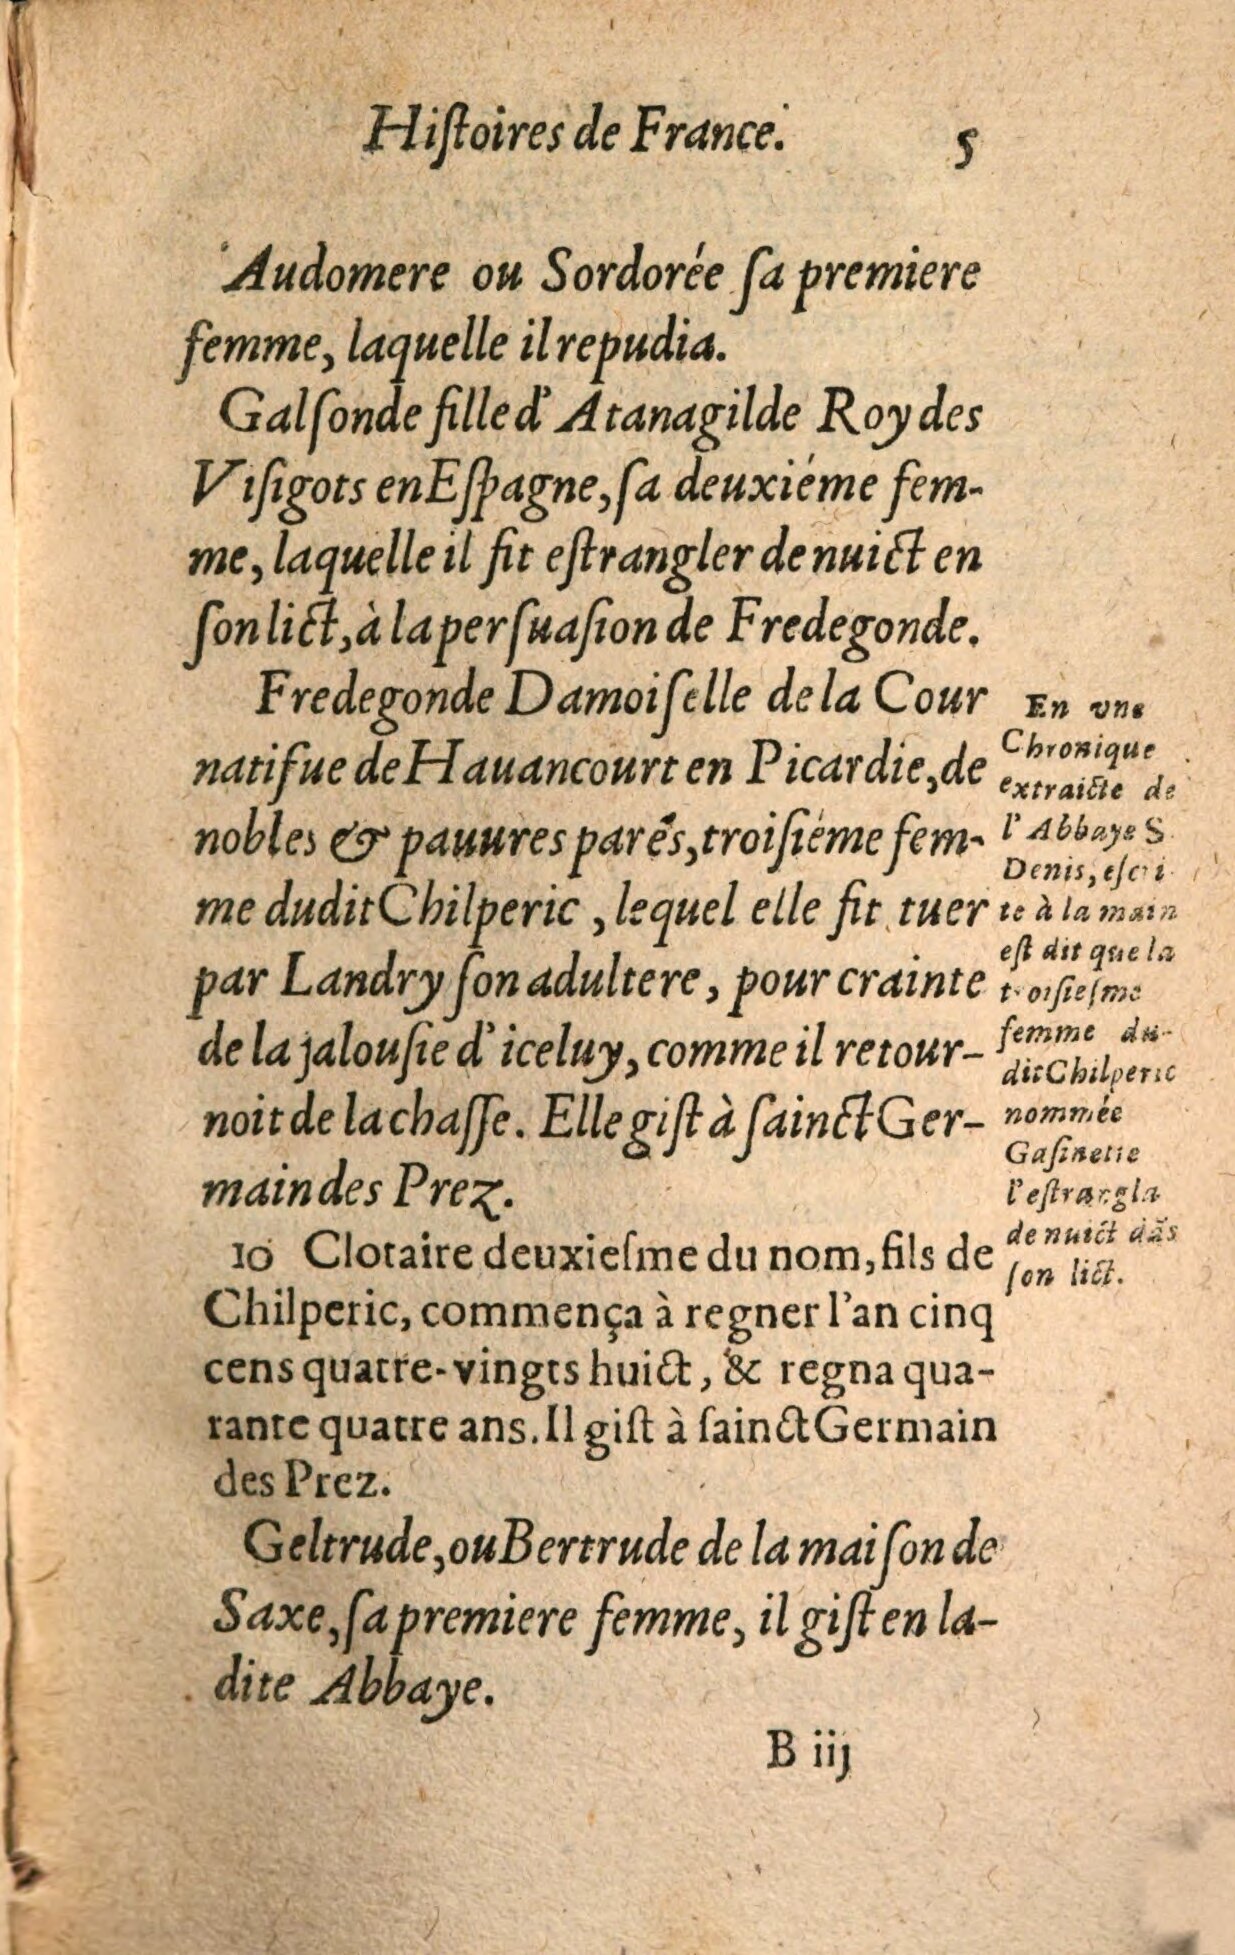 Hiſtoires de France. 5
Audomere ou Sordorée ſa premiere
femme, laquelle il repudia.
Galſonde fille d'Atanagilde Roy des
Viſigots en Eſpagne, ſa deuxiéme fem-
me, laquelle il fit eſtrangler de nuict en
ſon lict, à la perſuaſion de Fredegonde.
Fredegonde Damoiſelle de la Cour
natifue de Hauancourt en Picardie, de
nobles & pauures parẽs, troiſiéme fem-
me dudit Chilperic, lequel elle fit tuer
par Landry ſon adultere, pour crainte
de la jalouſie d'iceluy, comme il retour-
noit de la chaſſe. Elle giſt à ſainct Ger-
main des Prez.
10 Clotaire deuxieſme du nom, fils de
Chilperic, commença à regner l'an cinq
cens quatre-vingts huict, & regna qua-
rante quatre ans. Il giſt à ſainct Germain
des Prez.
Geltrude, ou Bertrude de la maiſon de
Saxe, ſa premiere femme, il giſt en la-
dite Abbaye.
B iij
En vne
Chronique
extraicte de
l'Abbaye S.
Denis, eſcri-
te à la main
eſt dit que la
troiſieſme
femme du-
dit Chilperic
nommée
Gaſinette
l'eſtrangla
de nuict dãs
ſon lict.